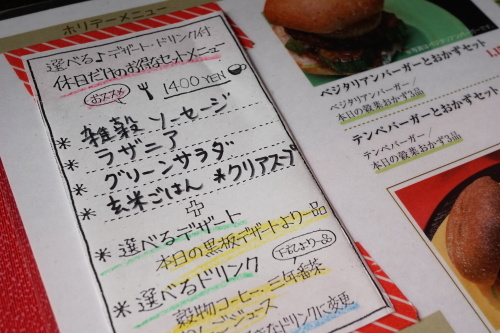 ホリデーメニュー
選べる♪デザート・ドリンク付
休日だけのお得なセットメニュー
おススメ 1400YEN
* 雑穀ソーセージ
* ラザニア
* グリーンサラダ
* 玄米ごはん *クリアスープ
+
* 選べるデザート
本日の黒板デザートより一品
* 選べるドリンク 下記より一品
穀物コーヒー・三年番茶
ベジタリアンバーガーとおかずセット
ベジタリアンバーガー/
本日の穀菜おかず3品
テンペバーガーとおかずセット
テンペバーガー/
本日の穀菜おかず3品